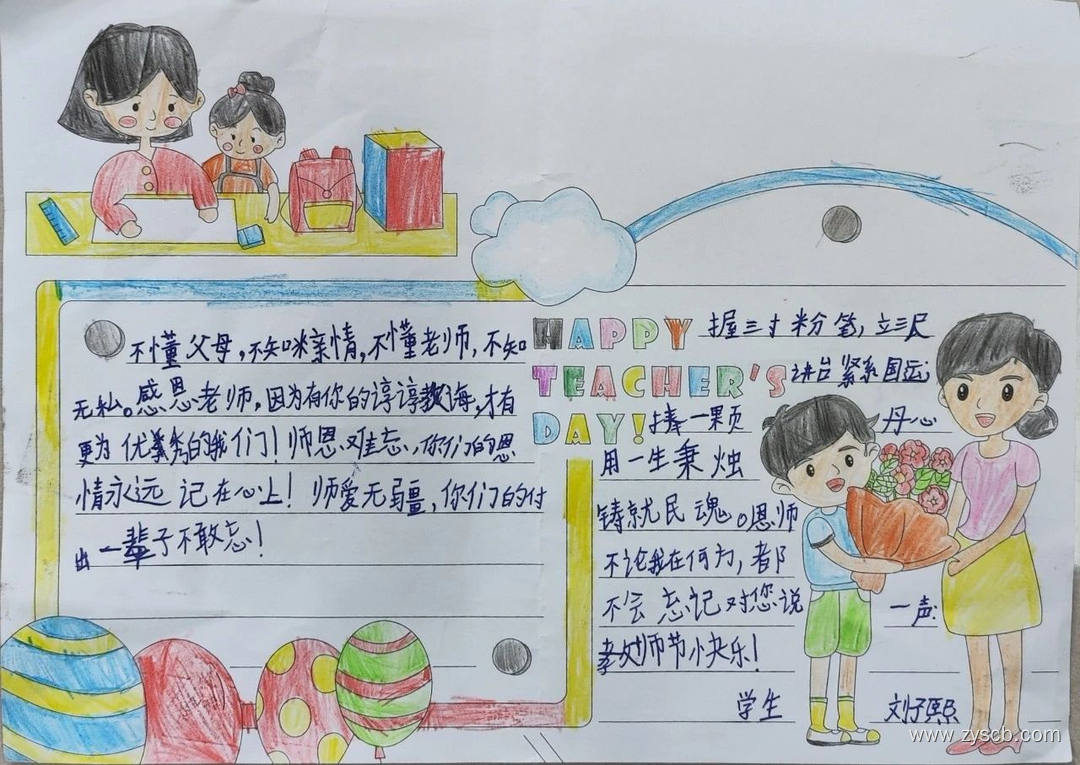 不懂父母,不知咪亲情,不懂老师,不知
无私。感恩老师,因为有你的谆谆教诲,才有
更为优秀的我们!师恩难忘,你们的恩
情永远记在心上!师爱无疆,你们的付
出一辈子不敢忘!
HAPPY
TEACHER'S
DAY!
握三寸粉笔,立三尺
讲台紧系国运
捧一颗丹心
用一生秉烛
铸就民魂。恩师
不论我在何方,都
不会忘记对您说一声:
教师节小快乐!
学生 刘子熙
www.zyscb.com